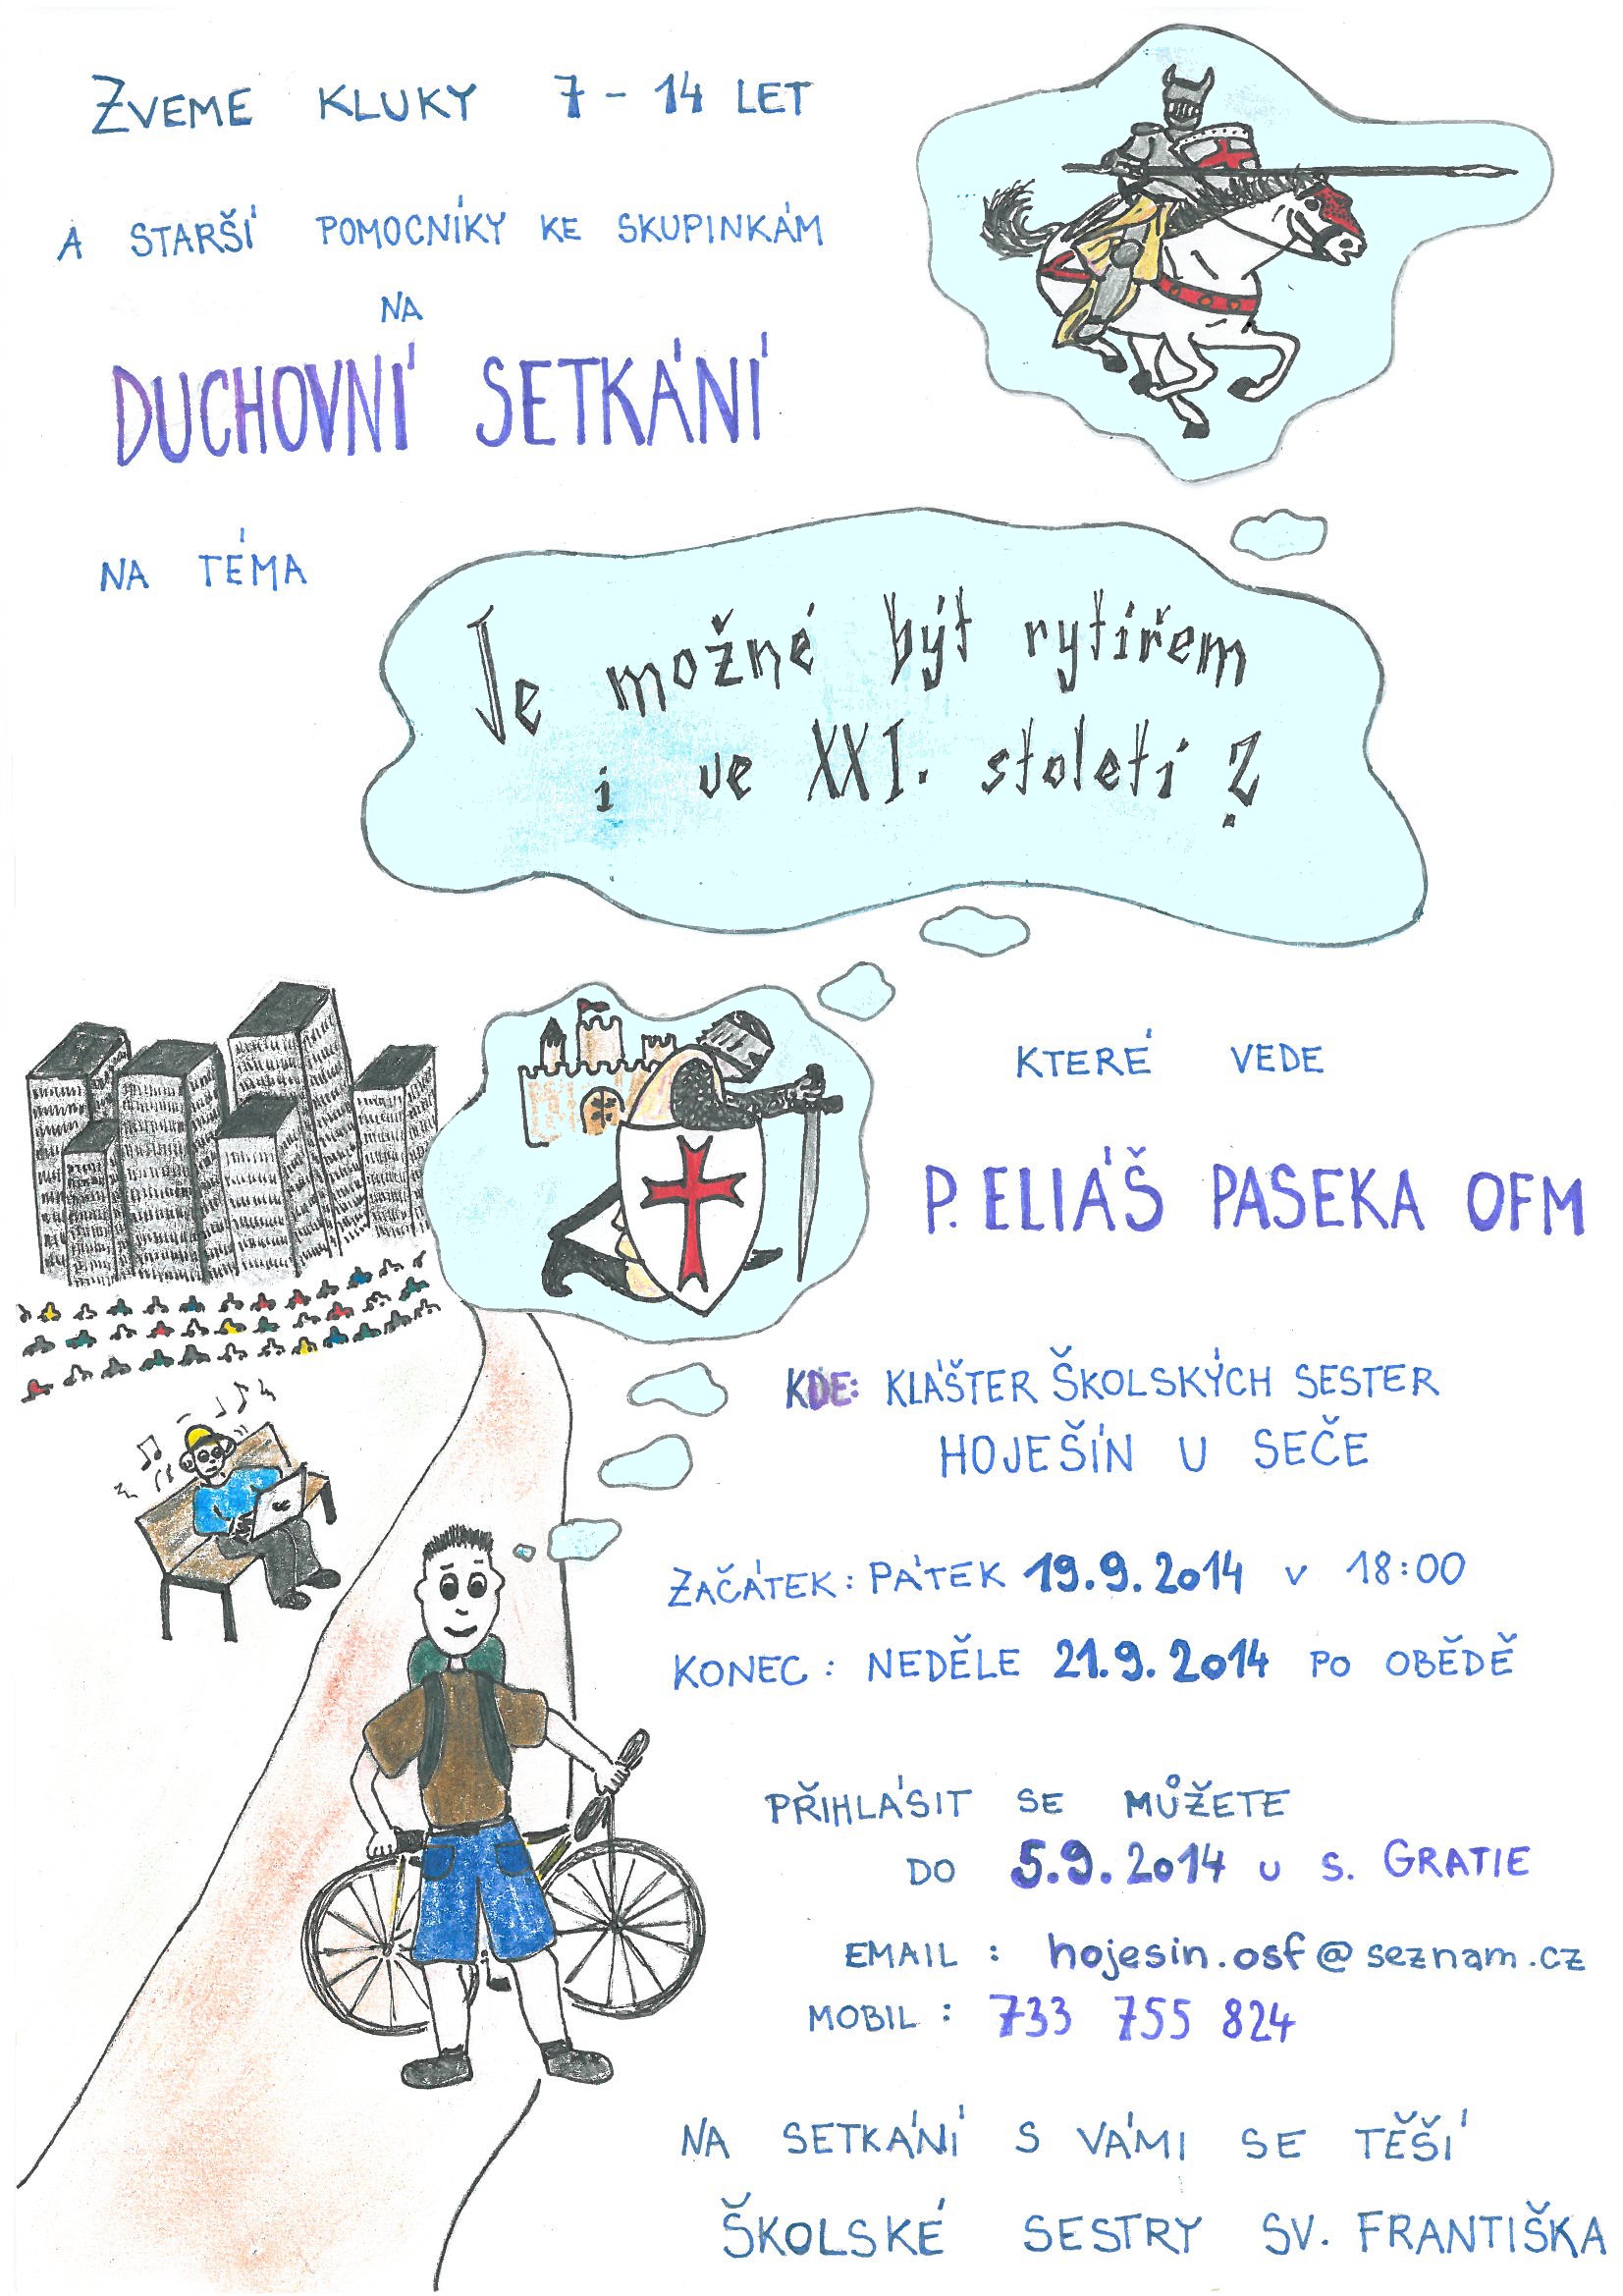 ZVEME KLUKY 7 - 14 LET
A STARŠÍ POMOCNÍKY KE SKUPINKÁM
NA
DUCHOVNÍ SETKÁNÍ
NA TÉMA
Je možné být rytířem
i ve XXI. století ?
KTERÉ VEDE
P. ELIÁŠ PASEKA OFM
KDE: KLÁŠTER ŠKOLSKÝCH SESTER
HOJEŠÍN U SEČE
ZAČÁTEK: PÁTEK 19.9.2014 v 18:00
KONEC: NEDĚLE 21.9.2014 PO OBĚDĚ
PŘIHLÁSIT SE MŮŽETE
DO 5.9.2014 U S. GRATIE
EMAIL : hojesin.osf@seznam.cz
MOBIL : 733 755 824
NA SETKÁNÍ S VÁMI SE TĚŠÍ
ŠKOLSKÉ SESTRY SV. FRANTIŠKA